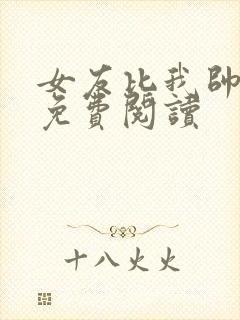 女友比我帥
免費閱讀
十八火火